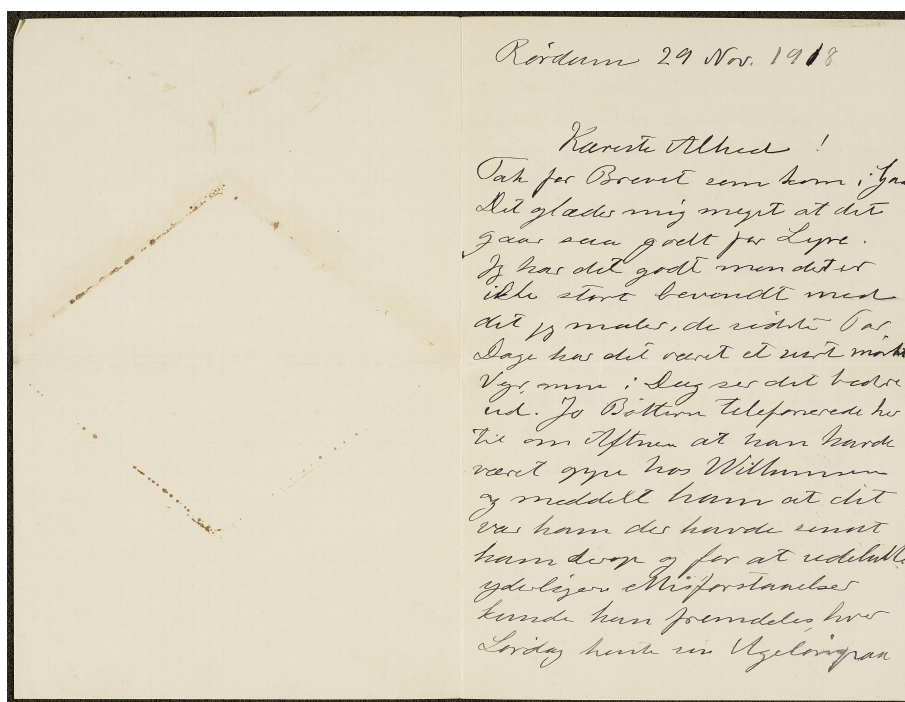 Rørdam 29 Nov. 1918
Kæreste Alhed !
Tak for Brevet som kom i Gaar
Det glæder mig meget at det
gaar saa godt for Lyse.
Jeg har det godt men det er
ikke stort bevendt med
det jeg maler, de sidste Par
Dage har det været et surt mørkt
Vejr, men i Dag ser det bedre
ud. Jo Bøttern telefonerede her
til om Aftnen at han havde
været oppe hos Willumsen
og meddelt ham at det
var ham der havde sendt
ham derop og for at udelukke
yderligere Misforstaaelser
kunde han fremdeles hver
Lørdag hente sin Ugeløn paa